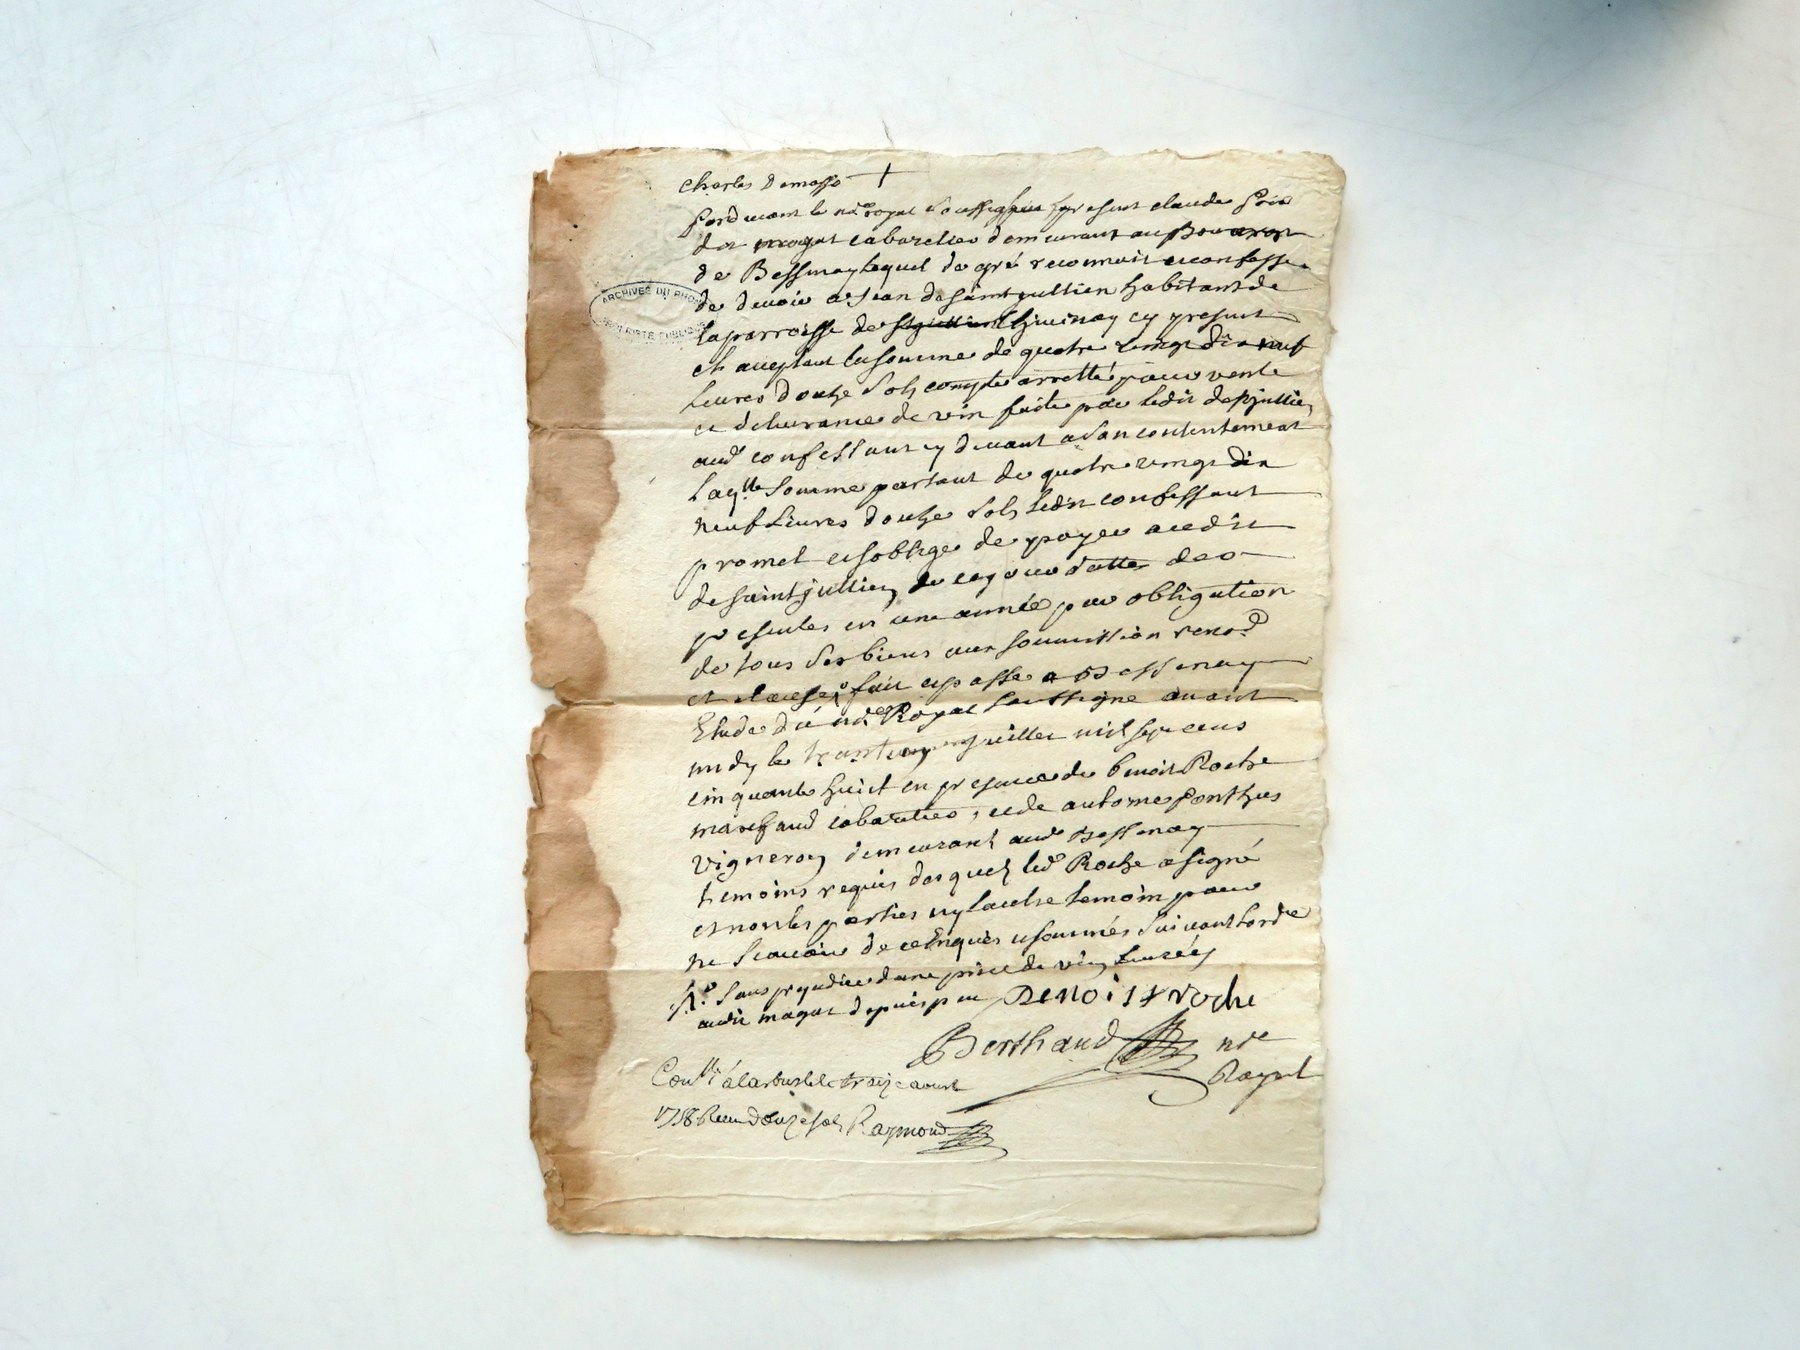 Charles Demasso
Pardevant le nre royal soussigné fut present claude
magat cabaretier demeurant au
de Bessenay lequel de gré reconnoit et confesse
de devoir a Jean de saint jullien habitant de
la parroisse de st jullien Chevinay cy present
et acceptant la somme de quatre vingt dix neuf
livres douze sols compte arretté pour vente
et delivrance de vin faite par ledit de st jullien
aud confessant cy devant a son contentement
laqlle somme partant de quatre vingt dix
neuf livres douze sols ledit confessant
promet et soblige de payer audit
de saint jullien de ce jour dattes des
presentes en une année par obligation
de tous ses biens aux soumission renod
et clauses fait et passé a Bessenay
Etude du nre Royal soussigne avant
midy le trente un juillet mil sept cens
cinquante huict en presence de benoit Roche
marchand cabaretier, et de antoine Ponthus
vigneron demeurant aud Bessenay
temoins requis desquels led Roche a signé
et non les parties ny lautre temoin pour
ne scavoir de ce enquis et sommés suivant lordre
sans prejudice dune piece de vin livrée
audit magat depuis peu
Benoist roche
Berthaud nre
Royal
ARCHIVES DU RHONE
Conllé à larbresle le treize aoust
1758 Reçu douze sols Raymond